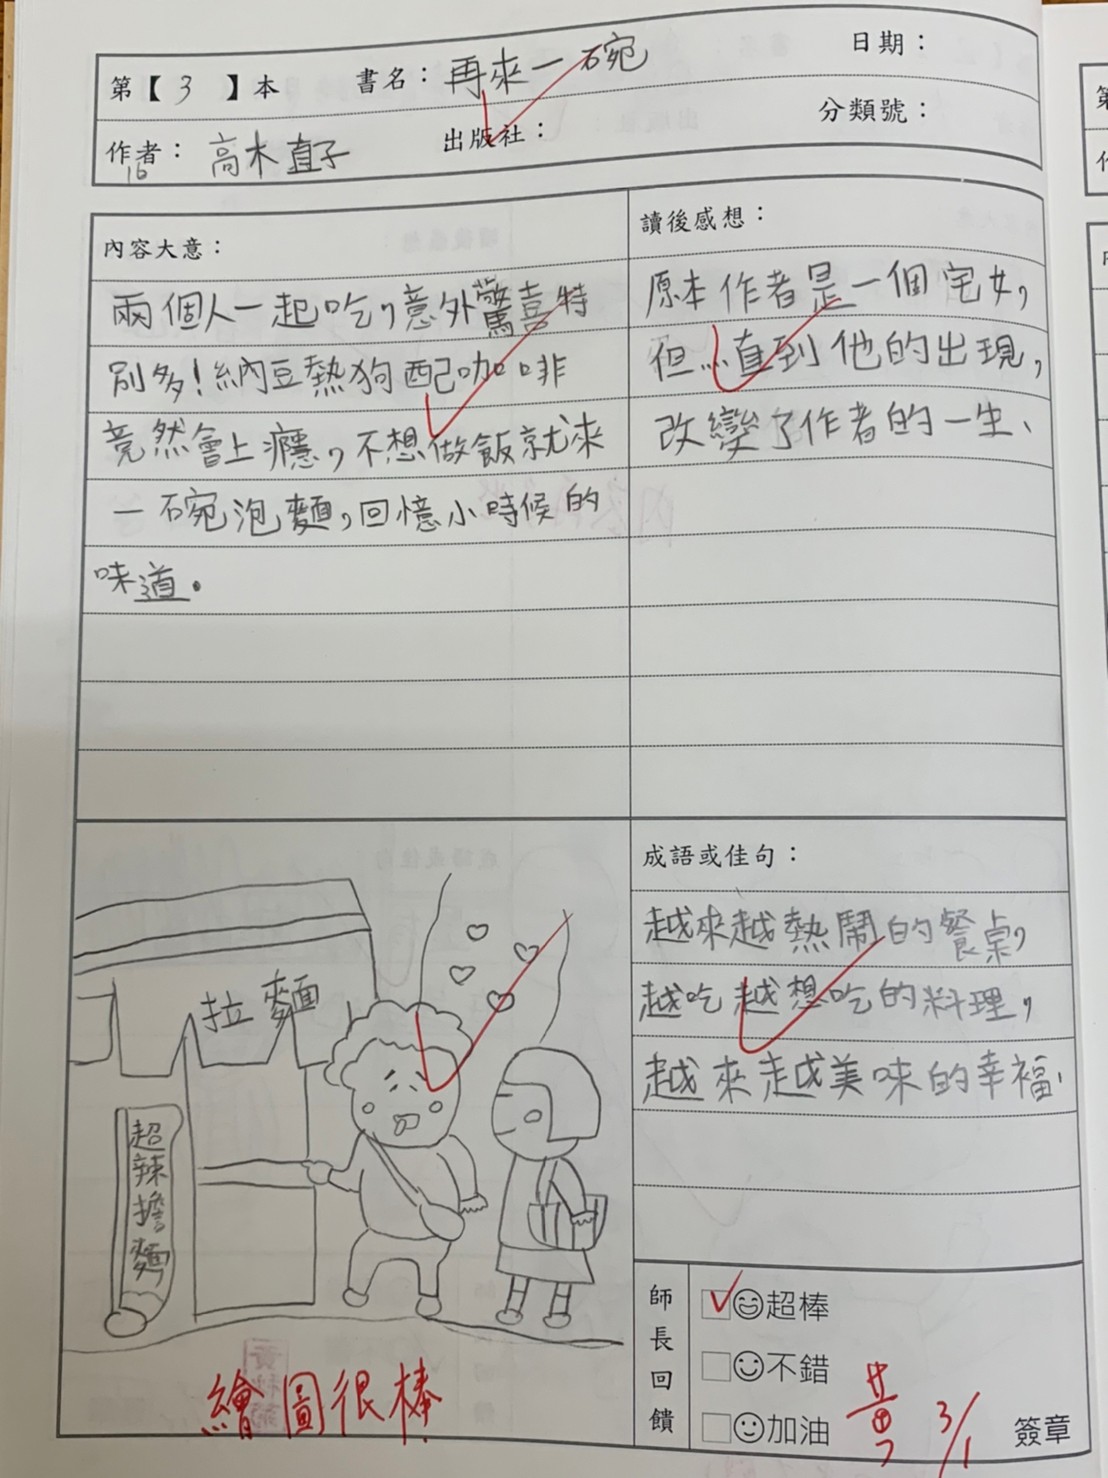 第【 3 】本 書名：再來一碗 日期：
作者： 高木直子 出版社： 分類號：
16
內容大意：
兩個人一起吃，意外驚喜特
別多！納豆熱狗配咖啡
竟然會上癮，不想做飯就來
一碗泡麵，回憶小時候的
味道。
讀後感想：
原本作者是一個宅女，
但一直到他的出現，
改變了作者的一生、
拉麵
超辣擔麵
繪圖很棒
成語或佳句：
越來越熱鬧的餐桌，
越吃越想吃的料理，
越來越美味的幸福、
師長回饋
超棒
不錯
加油
黃 3/1 簽章